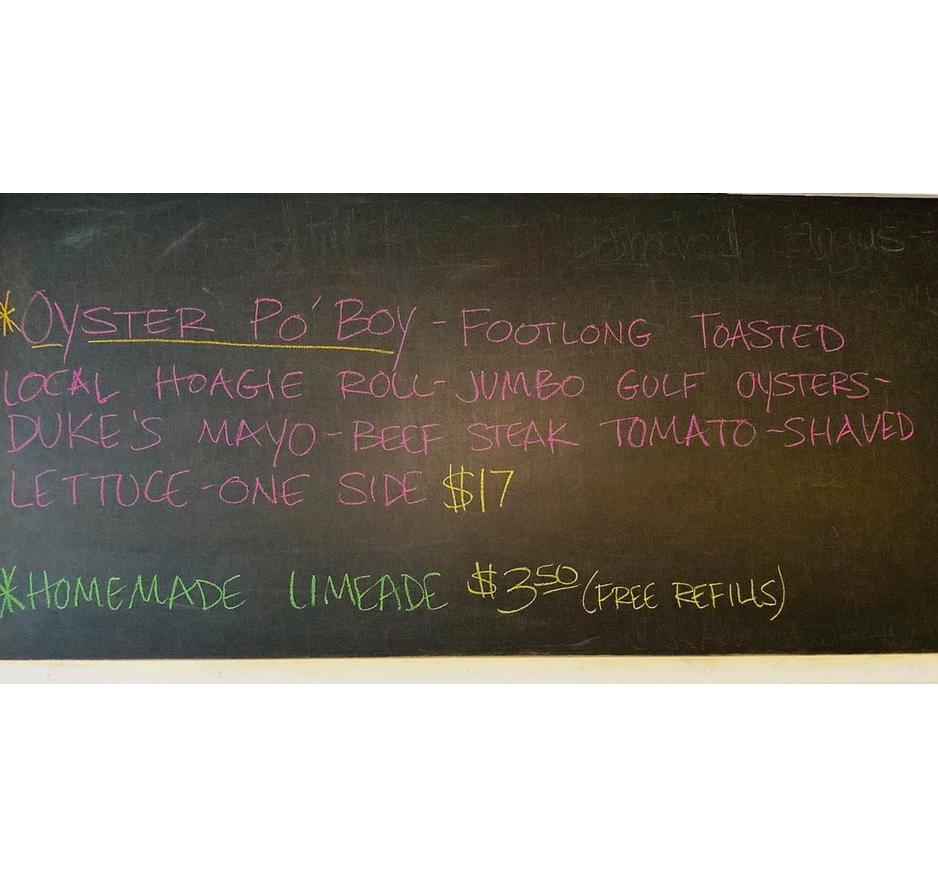 *OYSTER PO' BOY - FOOTLONG TOASTED
LOCAL HOAGIE ROLL - JUMBO GULF OYSTERS -
DUKE'S MAYO - BEEF STEAK TOMATO - SHAVED
LETTUCE - ONE SIDE $17
*HOMEMADE LIMEADE $3.50 (FREE REFILLS)